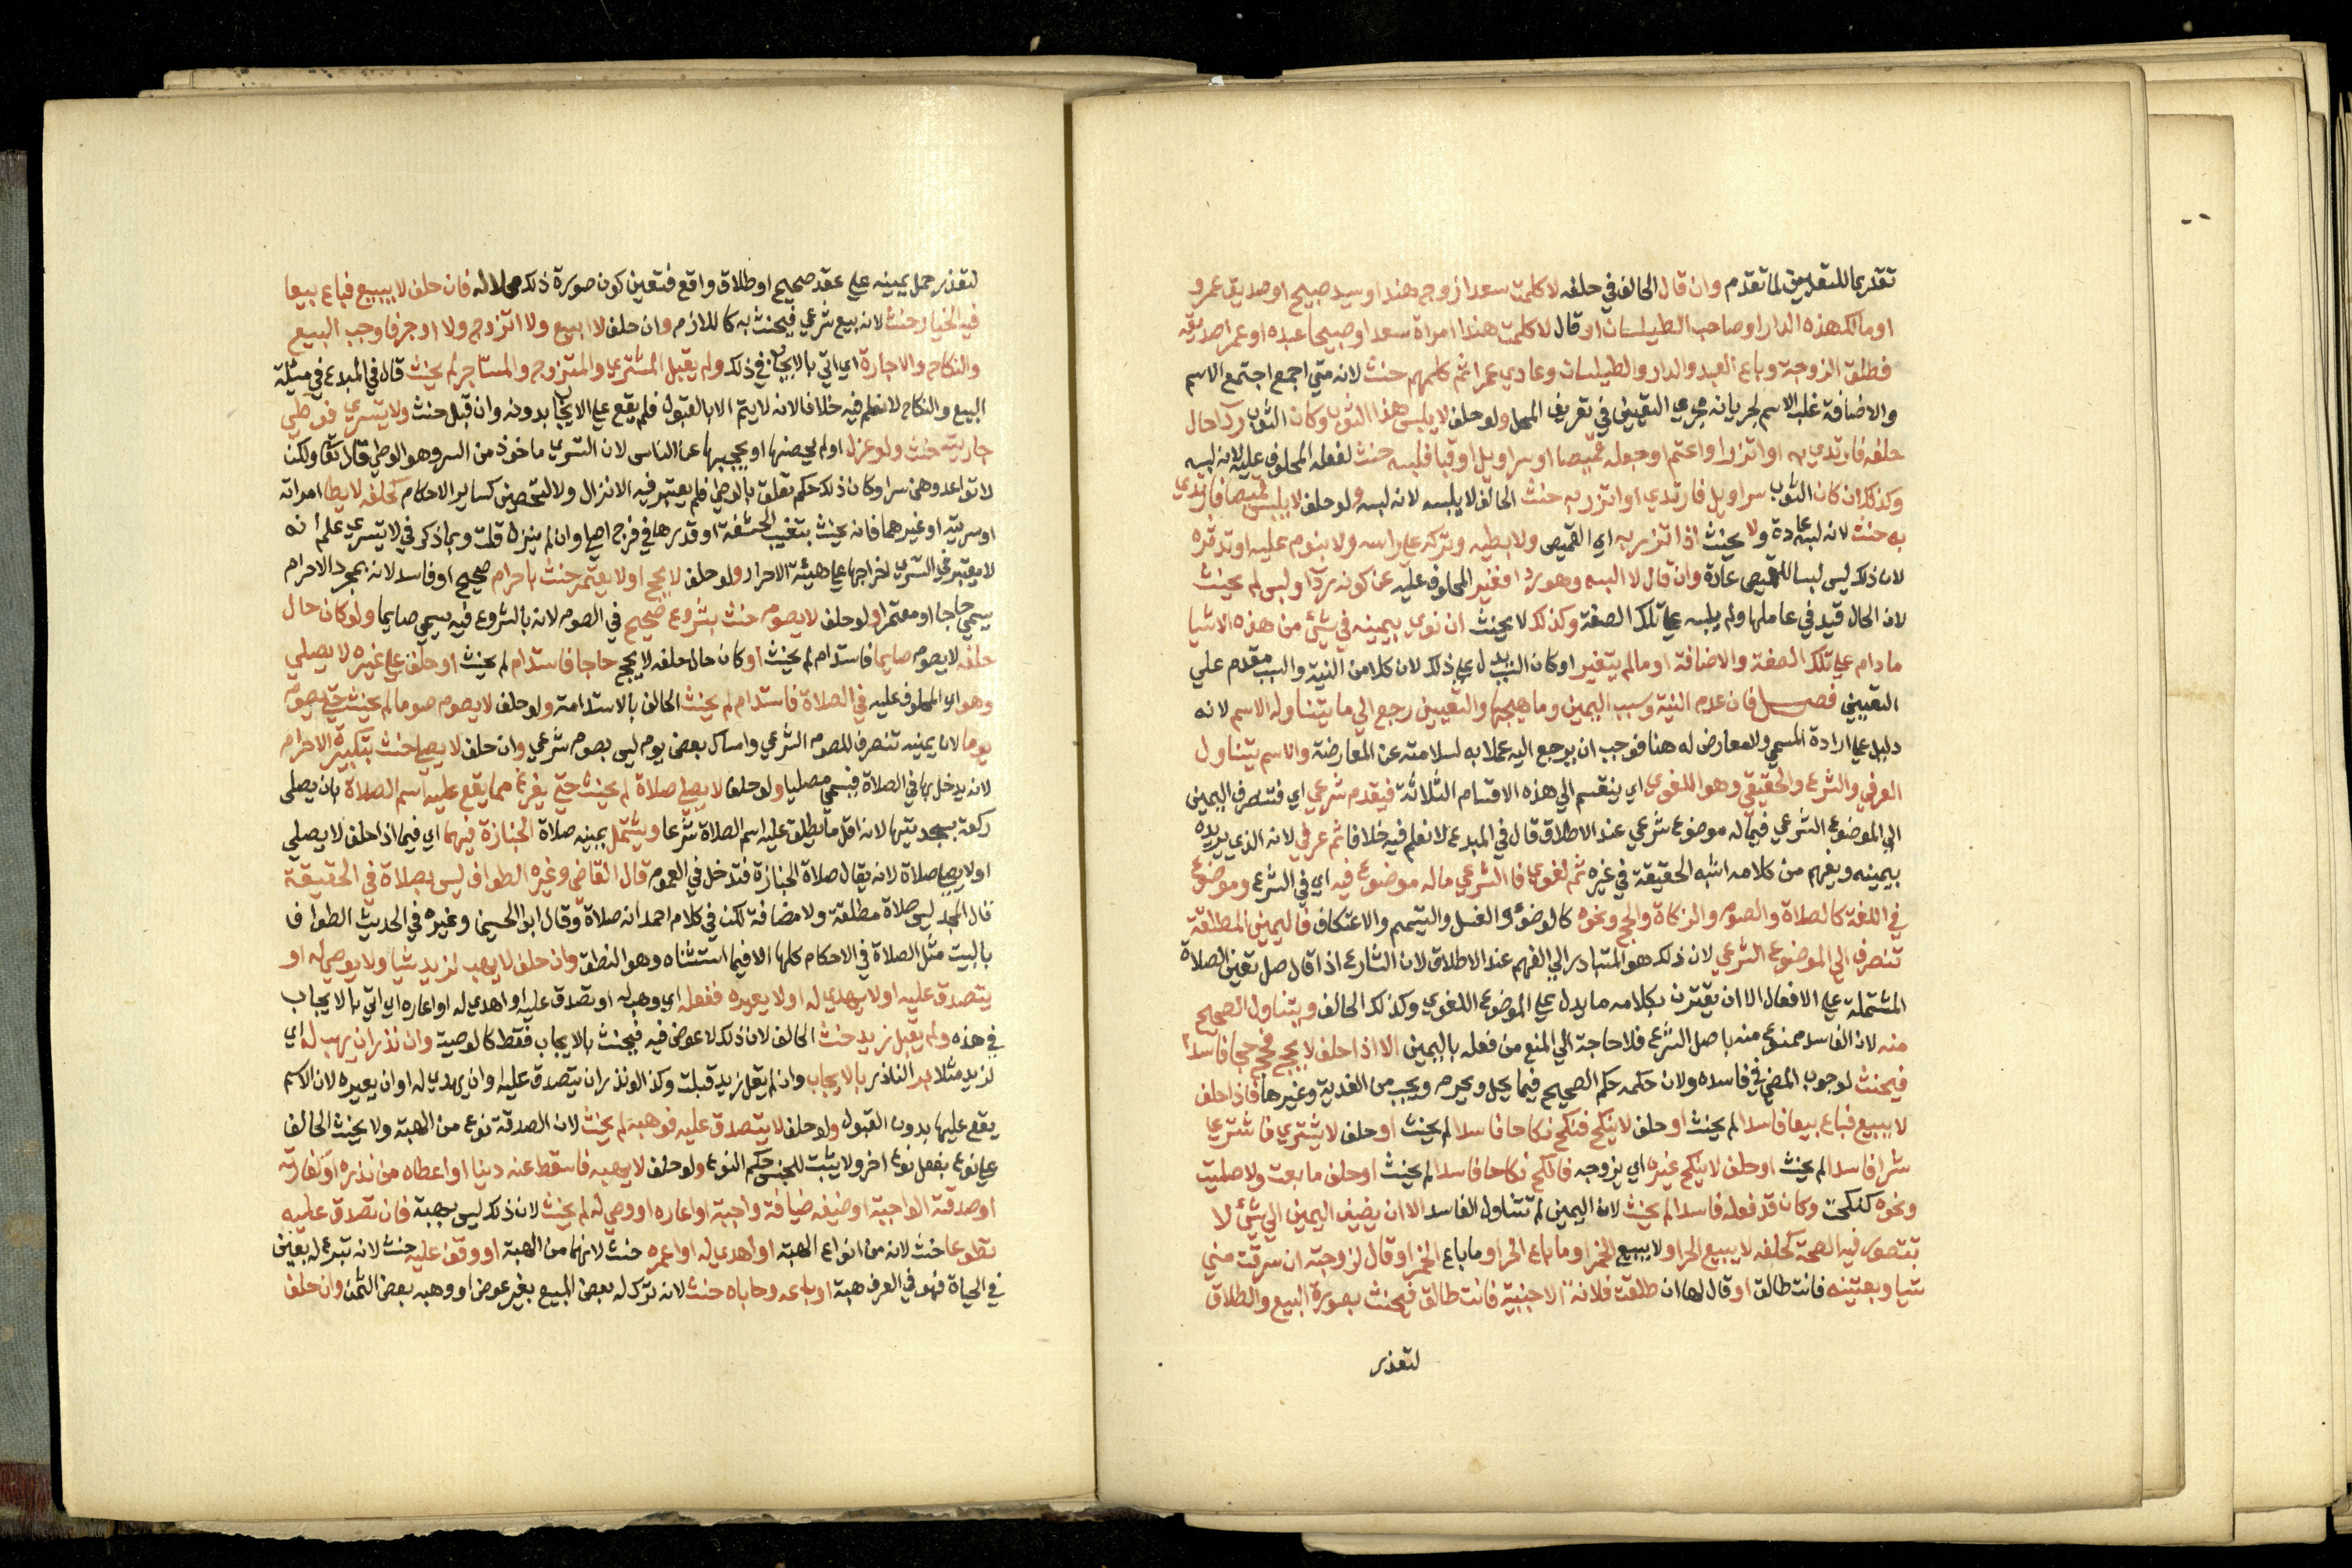 تقديما للتعيين لما تقدم وان قال الحالف في حلفه لا كلمت سعدا زوج هند او سيد صبيح او صديق عمرو
او مالك هذه الدار او صاحب الطيلسان او قال لا كلمت هندا امراة سعد او صبيحا عبده او عمرا صديقه
فطلق الزوجة وباع العبد والدار والطيلسان وعادي عمرا ثم كلمهم حنث لانه متي اجمع اجتمع الاسم
والاضافة غلب الاسم لجريانه مجري التعيين في تعريف المحل ولو حلف لا يلبس هذا الثوب وكان الثوب ردا حال
حلفه فارتدي به او اتزر او اعتم او جعله قميصا او سراويل او قبا فلبسه حنث لفعله المحلوف عليه لانه لبسه
وكذلك ان كان الثوب سراويل فارتدي او اتزر به حنث الحالف لا يلبسه لانه لبسه ولو حلف لا يلبس قميصا فارتدي
به حنث لانه لبسه عادة ولا يحنث اذا تزر به اي القميص ولا بطيه وتركه علي راسه ولا بنوم عليه او تدثره
لان ذلك ليس لبسا للقميص عادة وان قال لا البسه وهو ردا فغير المحلوف عليه عن كونه ردا ولبس لم يحنث
لان الحال قيد في عاملها ولم يلبسه علي تلك الصفة وكذلك لا يحنث ان نوي بيمينه في شئ من هذه الاشيا
ما دام علي تلك الصفة والاضافة او ما لم يتغير او كان السبب يدل علي ذلك لان كلا من النية والسبب مقدم علي
التعيين فصل فان عدم النية وسبب اليمين وما هيجها والتعيين رجع الي ما يتناوله الاسم لانه
دليل علي ارادة المسمي ولا معارض له هنا فوجب ان يرجع اليه عملا به لسلامته عن المعارضة والاسم يتناول
العرفي والشرعي والحقيقي وهو اللغوي اي ينقسم الي هذه الاقسام الثلاثة فيقدم شرعي اي فتنصرف اليمين
الي الموضوع الشرعي فيما له موضوع شرعي عند الاطلاق قال في المبدع لا نعلم فيه خلافا ثم عرفي لانه الذي يريده
بيمينه ويفهم من كلامه اشبه الحقيقة في غيره ثم لغوي فالشرعي ماله موضوع فيه اي في الشرع وموضوع
في اللغة كالصلاة والصوم والزكاة والحج ونحوه كالوضوء والغسل والتيمم والاعتكاف فاليمين المطلقة
تنصرف الي الموضوع الشرعي لان ذلك هو المتبادر الي الفهم عند الاطلاق لان الشارع اذا قال صل تعين الصلاة
المشتملة علي الافعال الا ان يقترن بكلامه ما يدل علي الموضوع اللغوي وكذلك الحالف ويتناول الصحيح
منه لان الفاسد ممنوع منه باصل الشرع فلا حاجة الي المنع من فعله باليمين الا اذا حلف لا يحج فحج حجا فاسدا
فيحنث لوجوب المضي في فاسده ولان حكمه حكم الصحيح فيما يحل ويحرم ويجب من الفدية وغيرها فاذا حلف
لا يبيع فباع بيعا فاسدا لم يحنث او حلف لا ينكح فنكح نكاحا فاسدا لم يحنث او حلف لا يشتري فاشتري
شرا فاسدا لم يحنث او حلف لا ينكح غيره اي يزوجه فانكح نكاحا فاسدا لم يحنث او حلف ما بعت ولا صليت
ونحوه كنكحت وكان قد فعله فاسدا لم يحنث لان اليمين لم تتناول الفاسد الا ان يضيف اليمين الي شئ لا
تتصور فيه الصحة كحلفه لا يبيع الحر او لا يبيع الخمر او ما باع الحر او ما باع الخمر او قال لزوجته ان سرقت مني
شيا وبعتينه فانت طالق او قال لها ان طلقت فلانة الاجنبية فانت طالق فيحنث بصورة البيع والطلاق
لتعذر
لتعذر حمل يمينه علي عقد صحيح او طلاق واقع فتعين كون صورة ذلك محلا له فان حلف لا يبيع فباع بيعا
فيه الخيار حنث لانه بيع شرعي فيحنث به كاللازم وان حلف لا ابيع ولا اتزوج ولا اوجر فاوجب البيع
والنكاح والاجارة اي اتي بالايجاب في ذلك ولم يقبل المشتري والمتزوج والمستاجر لم يحنث قال في المبدع في مسئلة
البيع والنكاح لا نعلم فيه خلافا لانه لا يتم الا بالقبول فلم يقع علي الايجاب بدونه وان قبل حنث ولا يتسري فوطي
جاريته حنث ولو عزل او لم يحصنها او يحجبها عن الناس لان التسري ماخوذ من السر وهو الوطي قال تعالي ولكن
لا تواعدوهن سرا وكان ذلك حكم تعلق بالوطي فلم يعتبر فيه الانزال ولا التحصين كساير الاحكام كحلفه لا يطا امراته
او سريته او غيرهما فانه يحنث بتغيب الحشفة او قدرها في فرج اصلي وان لم ينزل قلت وبما ذكر في لا يتسري علم انه
لا يعتبر في التسري اخراجها علي هيئة الاحرار ولو حلف لا يحج او لا يعتمر حنث باحرام صحيح او فاسد لانه بمجرد الاحرام
يسمي حاجا او معتمرا ولو حلف لا يصوم حنث بشروع صحيح في الصوم لانه بالشروع فيه يسمي صايما ولو كان حال
حلفه لا يصوم صايما فاستدام لم يحنث او كان حال حلفه لا يحج حاجا فاستدام لم يحنث او حلف علي غيره لا يصلي
وهو اي المحلوف عليه في الصلاة فاستدام لم يحنث الحالف بالاستدامة ولو حلف لا يصوم صوما لم يحنث حتي يصوم
يوما لان يمينه تنصرف للصوم الشرعي وامساك بعض يوم ليس بصوم شرعي وان حلف لا يصلي حنث بتكبيرة الاحرام
لانه يدخل بها في الصلاة فيسمي مصليا ولو حلف لا يصلي صلاة لم يحنث حتي يفرغ مما يقع عليه اسم الصلاة بان يصلي
ركعة بسجدتيها لانه اقل ما يطلق عليه اسم الصلاة شرعا ويشتمل يمينه صلاة الجنازة فيهما اي فيما اذا حلف لا يصلي
او لا يصلي صلاة لانه يقال صلاة الجنازة فتدخل في العموم قال القاضي وغيره الطواف ليس بصلاة في الحقيقة
قال المجد ليس صلاة مطلقة ولا مضافة لكن في كلام احمد انه صلاة وقال ابو الحسين وغيره في الحديث الطواف
بالبيت مثل الصلاة في الاحكام كلها الا فيما استثناه وهو النطق وان حلف لا يهب لزيد شيا ولا يوصي له او
يتصدق عليه او لا يهدي له او لا يعيره ففعل اي وهبه او تصدق عليه او اهدي له او اعاره اي اتي بالايجاب
في هذه ولم يقبل زيد حنث الحالف لان ذلك لا عوض فيه فيحنث بالايجاب فقط كالوصية وان نذر ان يهب له اي
لزيد مثلا بر الناذر بالايجاب وان لم يقل زيد قبلت وكذا لو نذر ان يتصدق عليه او ان يهدي له او ان يعيره لان الاسم
يقع عليها بدون القبول ولو حلف لا يتصدق عليه فوهبه لم يحنث لان الصدقة نوع من الهبة ولا يحنث الحالف
علي نوع بفعل نوع اخر ولا يثبت للجنس حكم النوع ولو حلف لا يهبه فاسقط عنه دينا او اعطاه من نذره او كفارته
او صدقته الواجبة او ضيفه ضيافة واجبة او اعاره او وصي له لم يحنث لان ذلك ليس بهبة فان تصدق عليه
تطوعا حنث لانه من انواع الهبة او اهدي له او اعمره حنث لانهما من الهبة او وقف عليه حنث لانه تبرع له بعين
في الحياة فهو في العرف هبة او باعه وحاباه حنث لانه ترك له بعض المبيع بغير عوض او وهبه بعض الثمن وان حلف